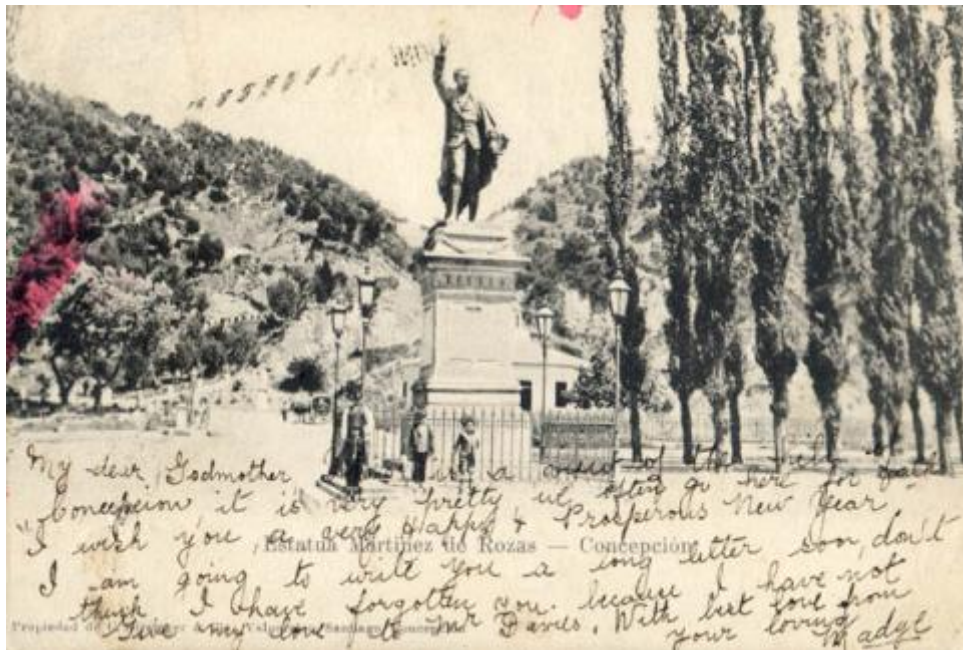 My dear Godmother is a view of the
Concepcion it is very pretty we often go here for
I wish you a very Happy & Prosperous New Year
Estatua Martínez de Rozas — Concepción
I am going to write you a long letter soon, don't
think I have forgotten you. because I have not
Propiedad de
Give my love to Mr Davies. With best love from
your loving
Madge